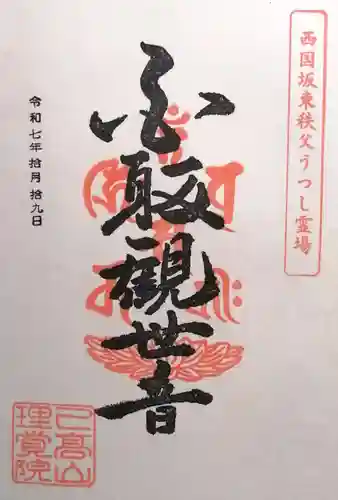 西国坂東秩父うつし霊場
不取観世音
令和七年拾月拾九日
己高山
理覚院